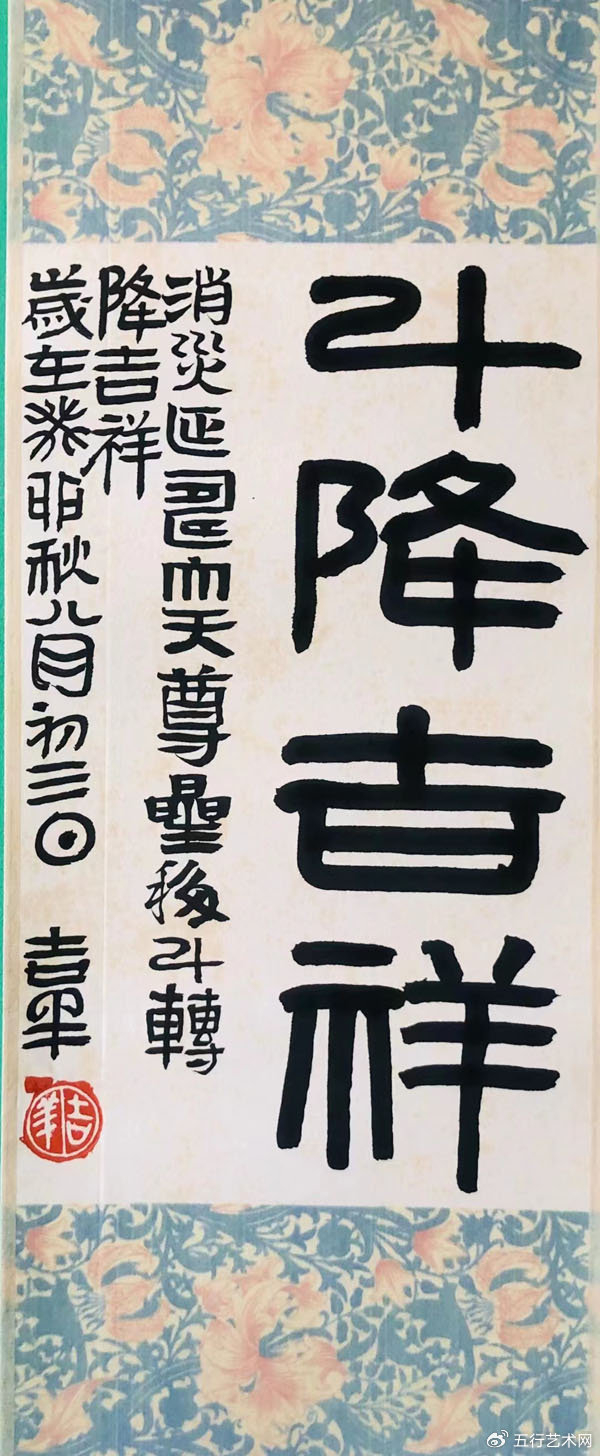 斗降吉祥
消災延天尊曐移斗轉
降吉祥
歲在癸卯秋八月初三日 吉羊
吉羊
五行艺术网